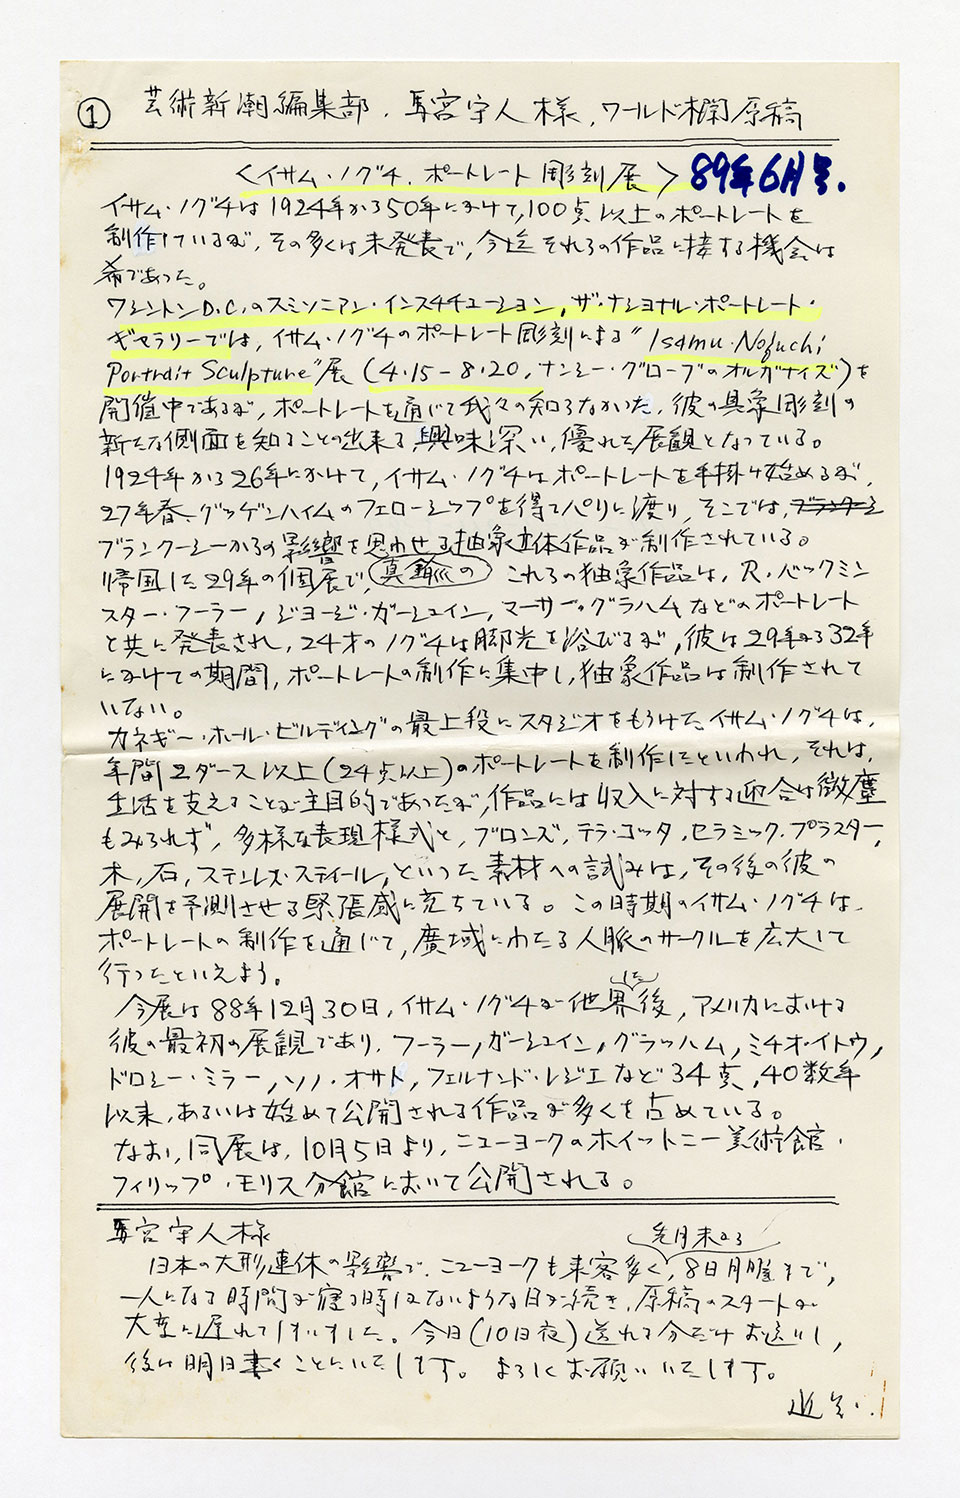 ① 芸術新潮編集部、馬宮守人様、ワールド欄原稿
〈イサム・ノグチ、ポートレート彫刻展〉 89年6月号.
イサム・ノグチは1924年から50年にかけて、100点以上のポートレートを
制作しているが、その多くは未発表で、今迄それらの作品に接する機会は
希であった。
ワシントンD.C.のスミソニアン・インスチチューション、ザ・ナショナル・ポートレート・
ギャラリーでは、イサム・ノグチのポートレート彫刻による"Isamu・Noguchi
Portrait Sculpture"展(4・15-8・20、ナンシー・グローブのオルガナイズ)を
開催中であるが、ポートレートを通じて我々の知らなかった、彼の具象彫刻の
新たな側面を知ることの出来る、興味深い、優れた展観となっている。
1924年から26年にかけて、イサム・ノグチはポートレートを手掛け始めるが、
27年春、グッゲンハイムのフェローシップを得てパリに渡り、そこでは、
ブランクーシーからの影響を思わせる抽象立体作品が制作されている。
帰国した29年の個展で、真鍮の これらの抽象作品は、R・バックミン
スター・フーラー、ジョージ・ガーシュイン、マーサ・グラハムなどのポートレート
と共に発表され、24才のノグチは脚光を浴びるが、彼は29年から32年
にかけての期間、ポートレートの制作に集中し、抽象作品は制作されて
いない。
カネギー・ホール・ビルディングの最上段にスタジオをもうけたイサム・ノグチは、
年間2ダース以上(24点以上)のポートレートを制作したといわれ、それは、
生活を支えることが主目的であったが、作品には収入に対する迎合は微塵
もみられず、多様な表現様式と、ブロンズ、テラ・コッタ、セラミック、プラスター、
木、石、ステンレス・スティール、といった素材への試みは、その後の彼の
展開を予測させる緊張感に充ちている。この時期のイサム・ノグチは、
ポートレートの制作を通じて、廣域にわたる人脈のサークルを広大して
行ったといえよう。
今展は88年12月30日、イサム・ノグチが他界した後、アメリカにおける
彼の最初の展観であり、フーラー、ガーシュイン、グラッハム、ミチオ・イトウ、
ドロシー・ミラー、ソノ・オサト、フェルナンド・レジェなど34点、40数年
以来、あるいは始めて公開される作品が多くを占めている。
なお、同展は、10月5日より、ニューヨークのホイットニー美術館・
フィリップ・モリス分館において公開される。
馬宮守人様
日本の大形連休の影響で、ニューヨークも先月末から来客多く、8日月曜まで、
一人になる時間が寝る時しかないような日が続き、原稿のスタートが
大変に遅れてしまいました。今日(10日夜)送れる分だけお送りし、
後は明日書くことにいたします。よろしくお願いいたします。